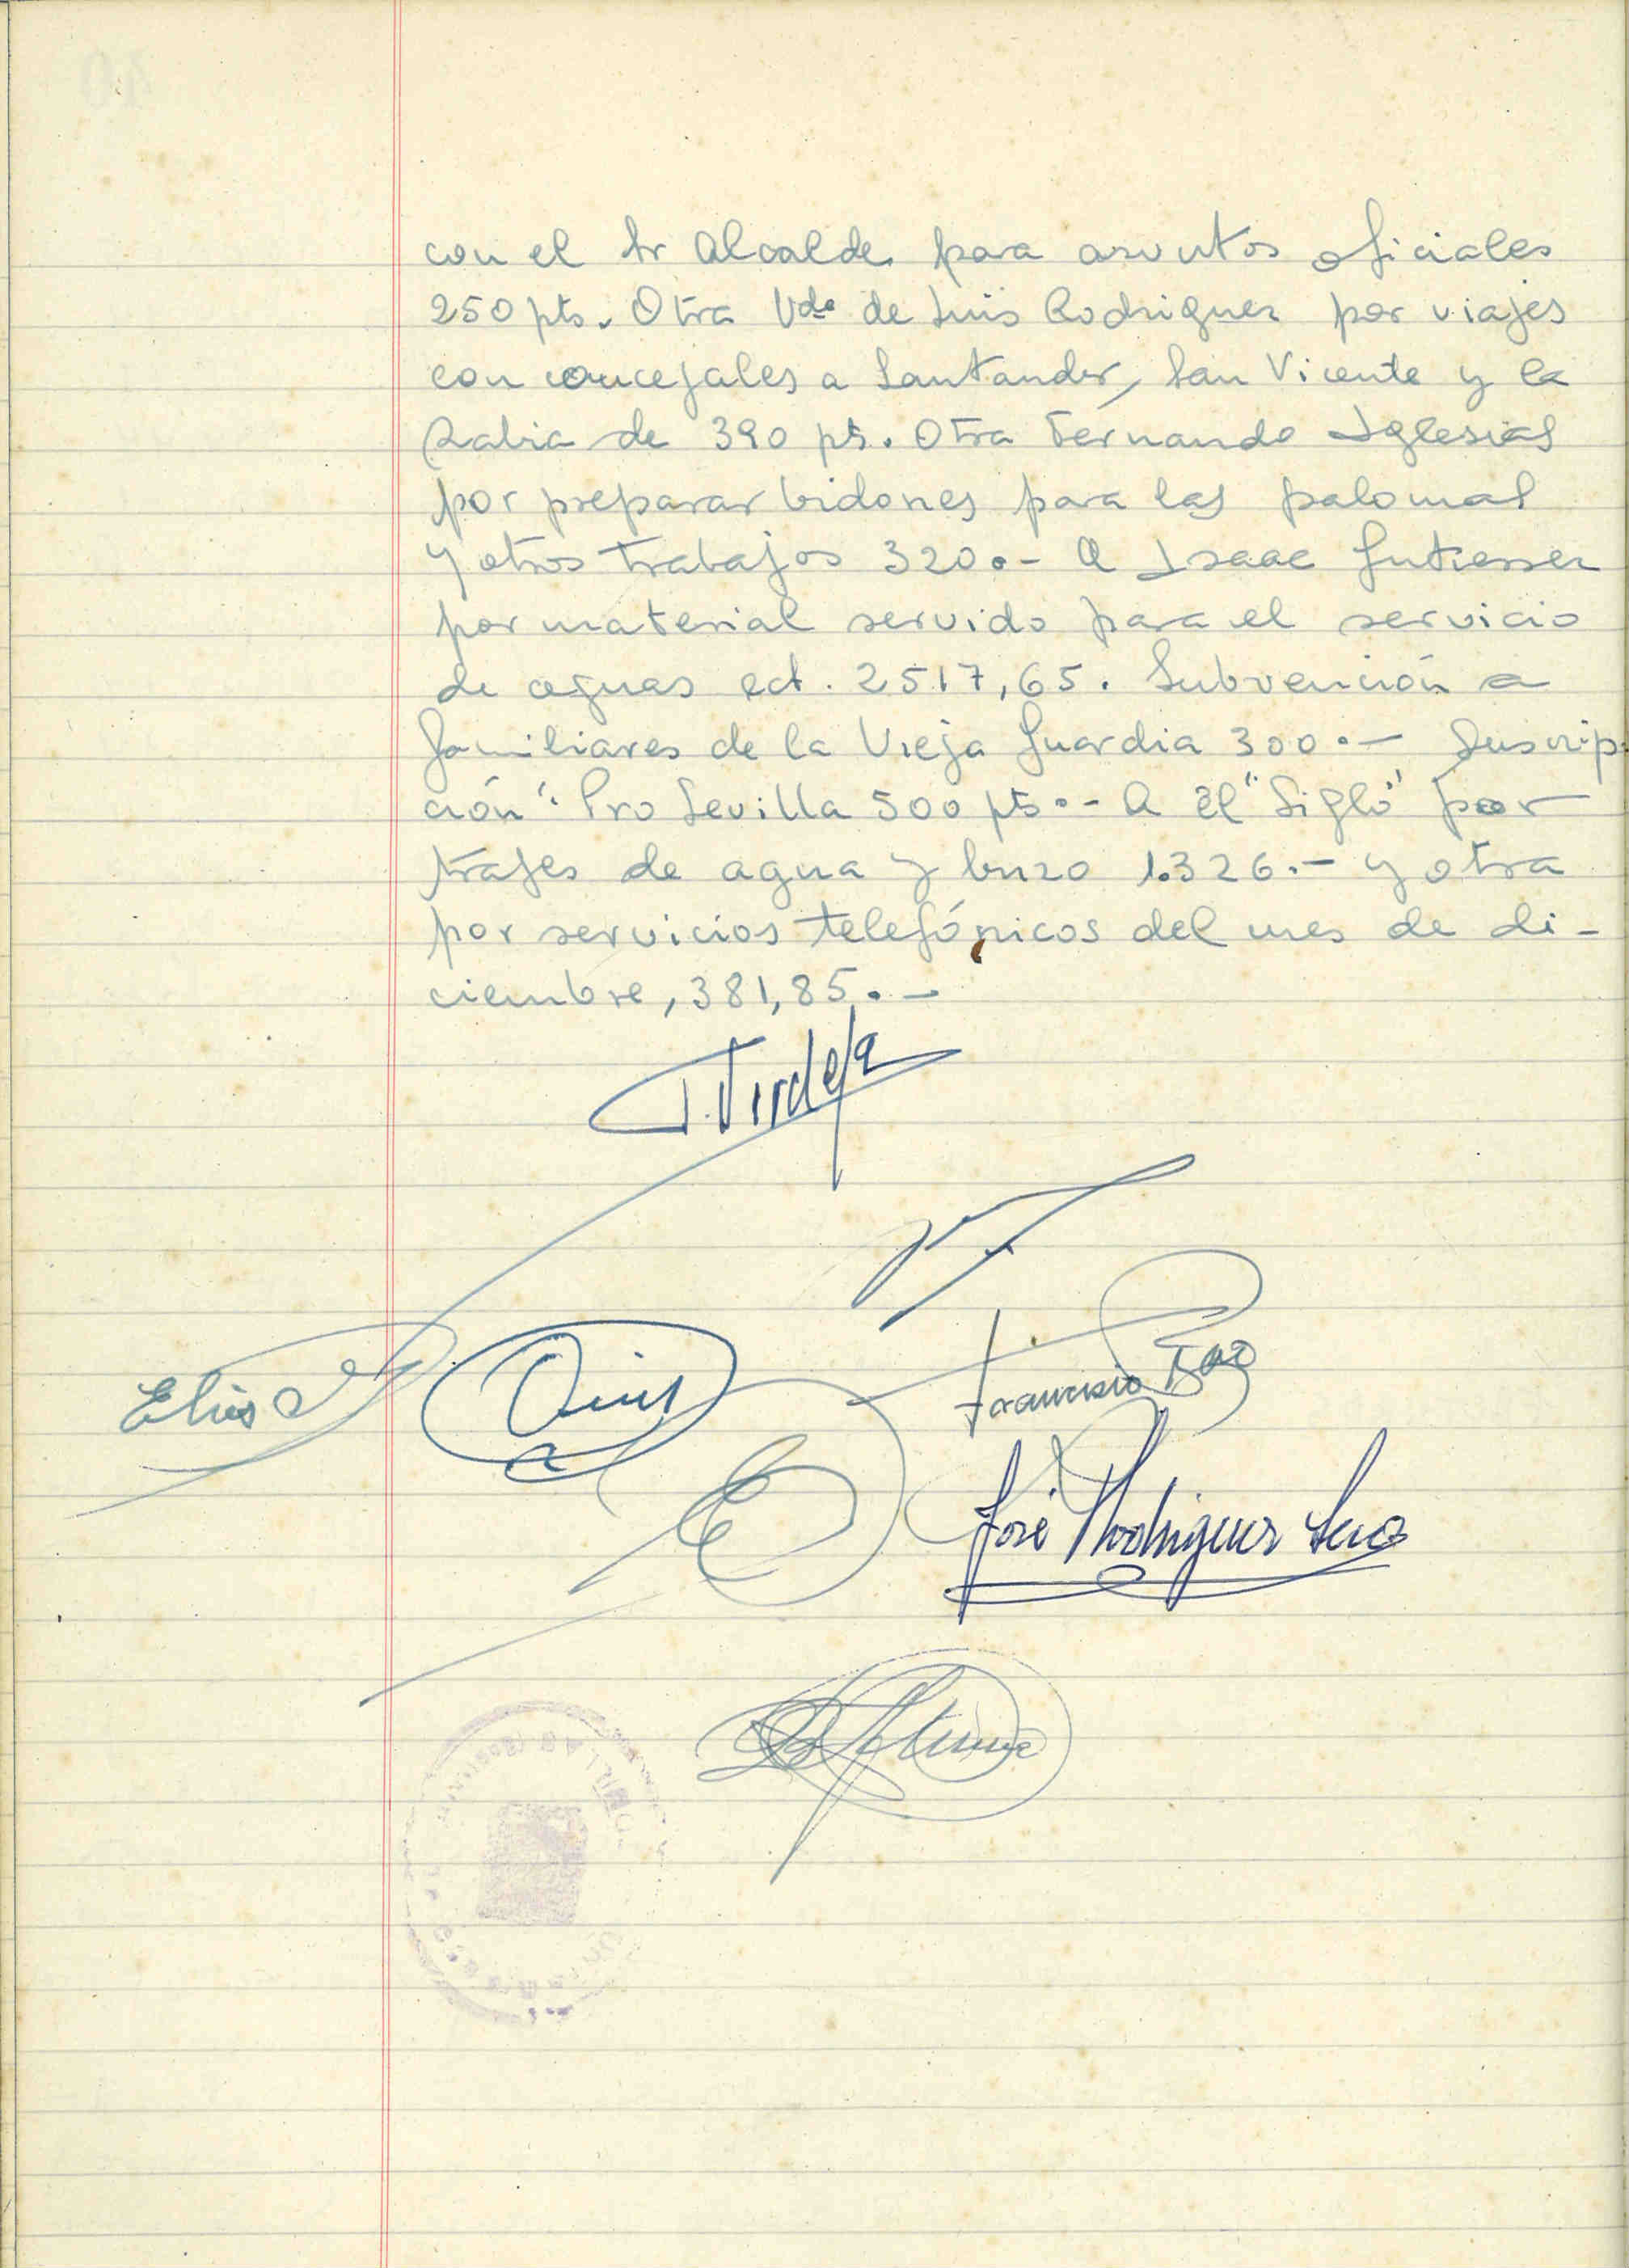 con el Sr Alcalde para asuntos oficiales
250 pts. Otra Vda de Luis Rodriguez por viajes
con concejales a Santander, San Vicente y la
Rabia de 390 pts. Otra Fernando Iglesias
por preparar bidones para las palomas
y otros trabajos 320.- A Isaac Gutierrez
por material servido para el servicio
de aguas ect. 2517,65. Subvención a
familiares de la Vieja Guardia 300.- Suscrip
ción "Pro Sevilla 500 pts.- A El "Siglo" por
trajes de agua y buzo 1.326.- y otra
por servicios telefónicos del mes de di-
ciembre, 381,85.-
Elias
Francisco
José Rodriguez